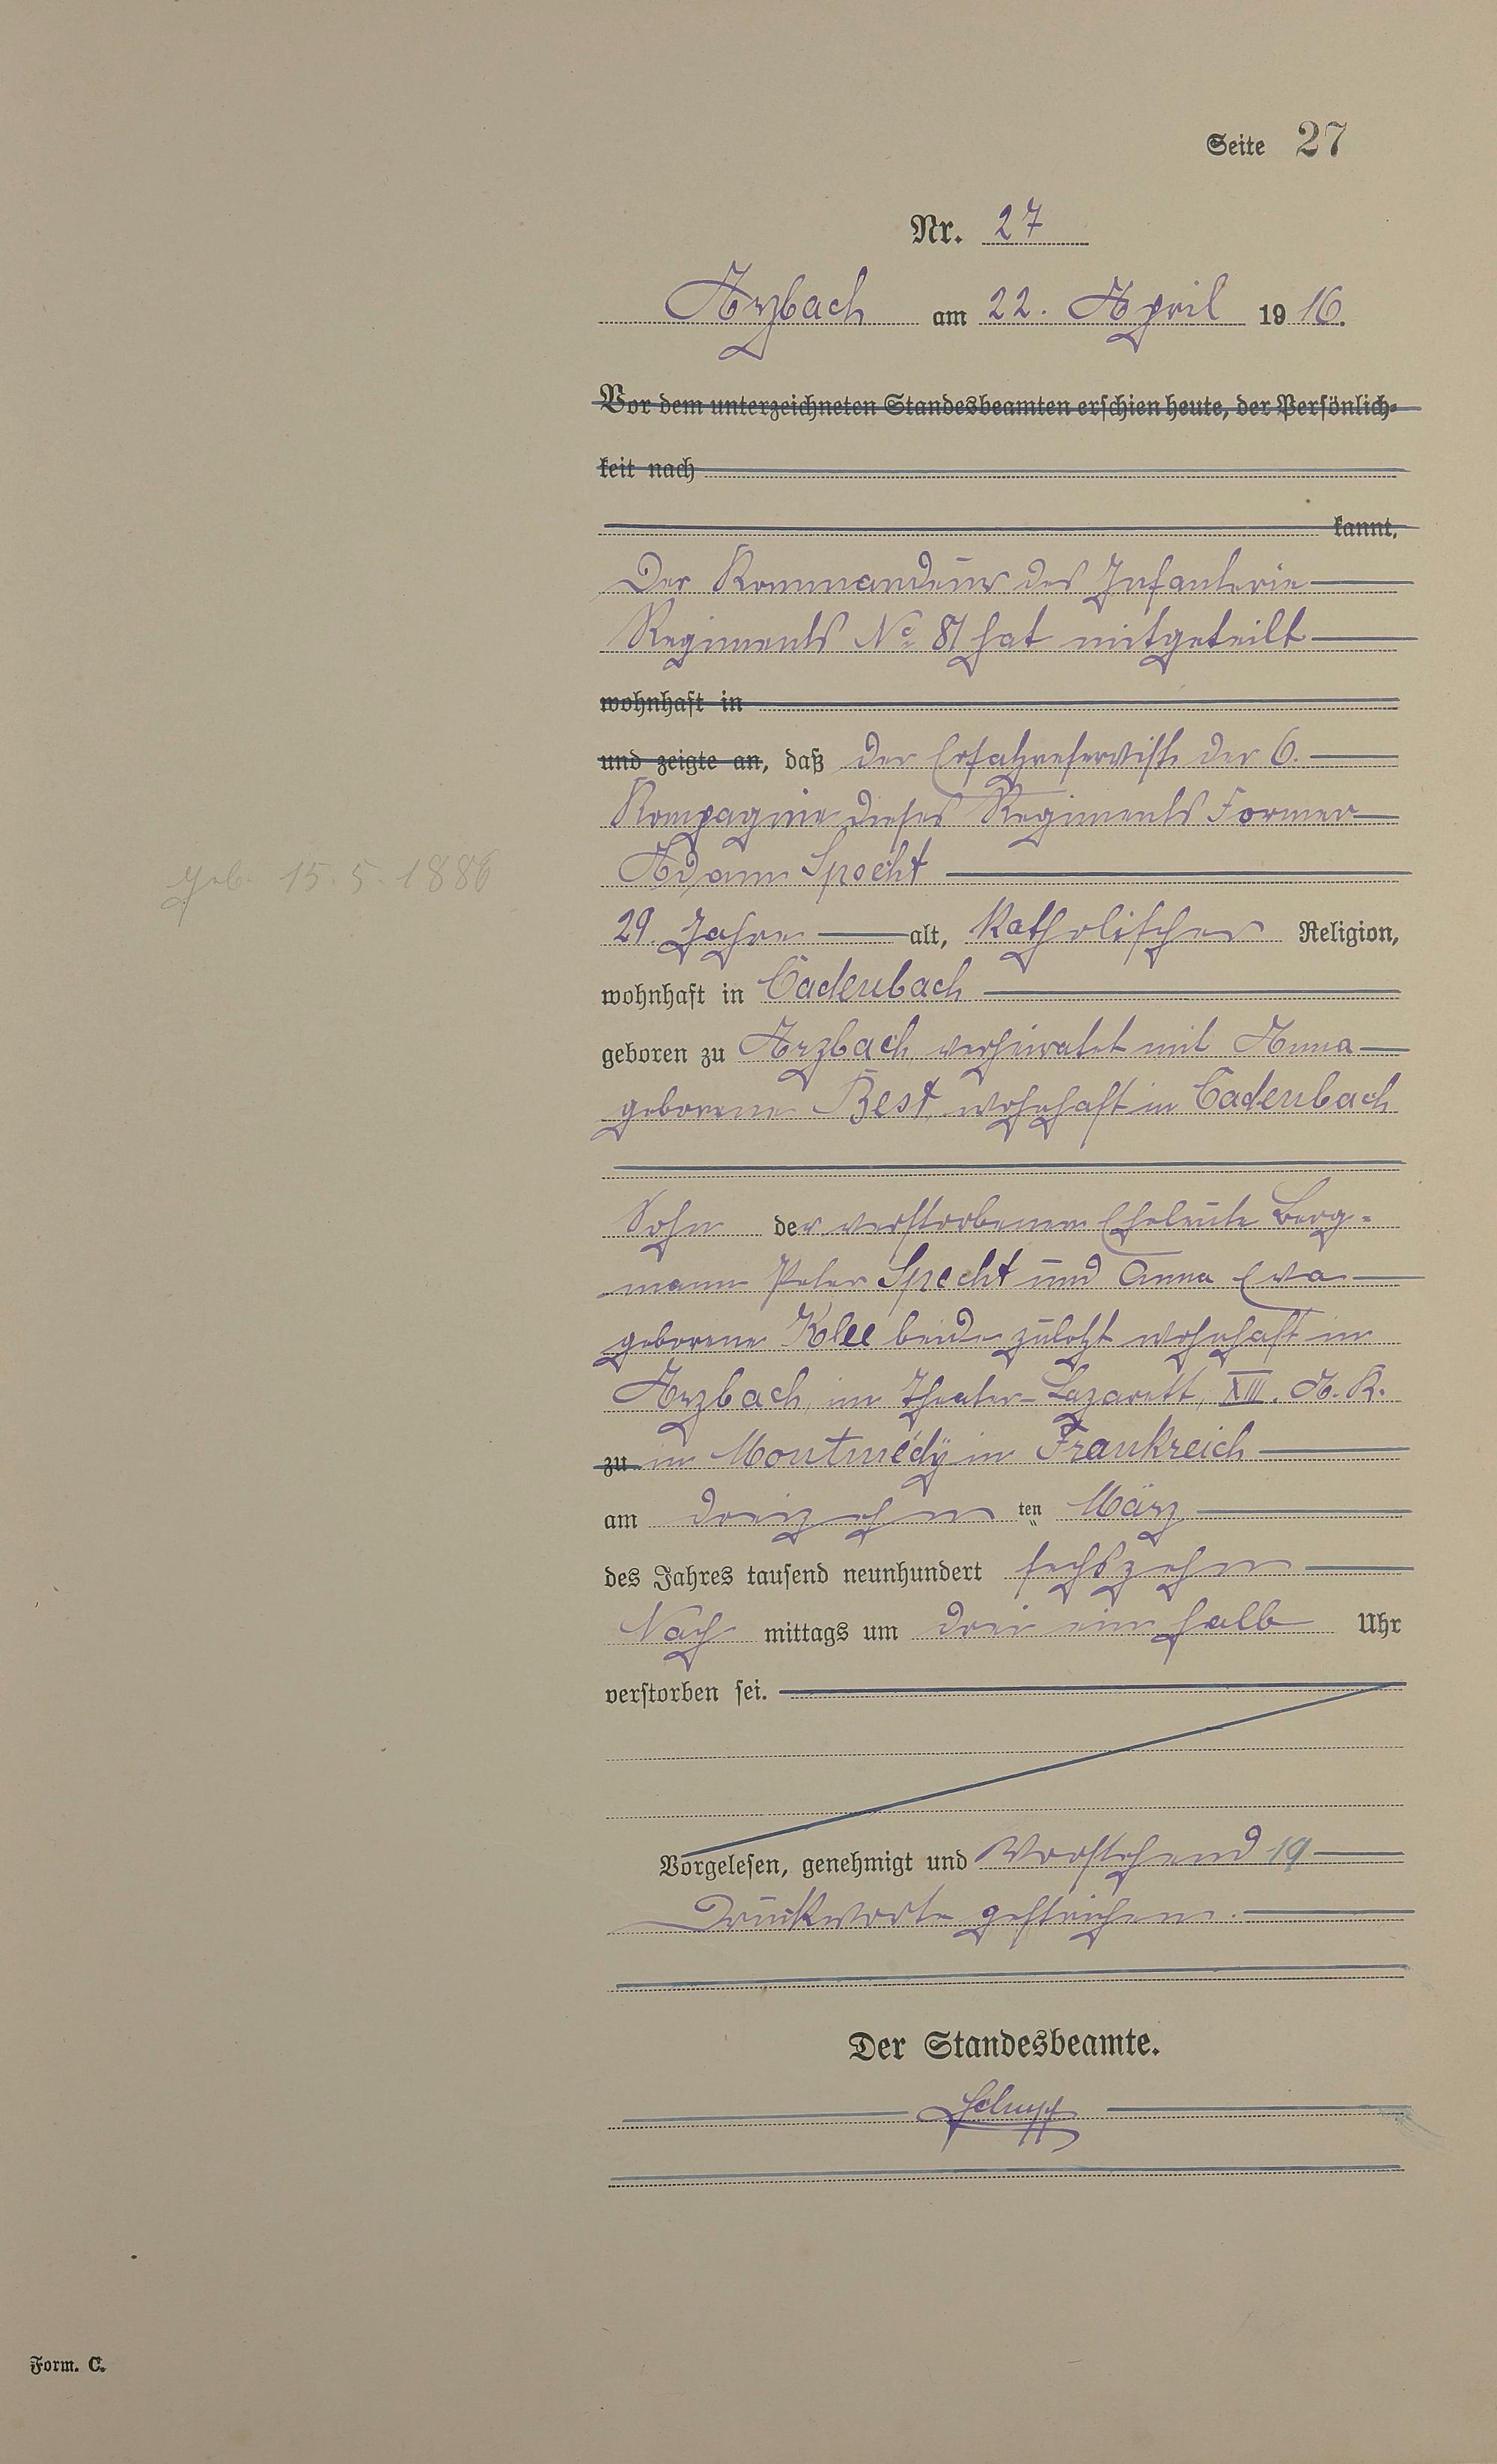 Seite 27
Nr. 27
Arzbach am 22. April 1916.
Vor dem unterzeichneten Standesbeamten erschien heute, der Persönlich-
keit nach
kannt,
Der Kommandeur des Infanterie
Regiments No. 81 hat mitgeteilt
wohnhaft in
und zeigte an, daß der Ersatzreservist der 6.
Kompagnie dieses Regiments Former
Adam Specht
geb. 15.5.1886
29 Jahre alt, katholischer Religion,
wohnhaft in Cadenbach
geboren zu Arzbach, verheiratet mit Anna
geborene Best, wohnhaft in Cadenbach
Sohn der verstorbenen Eheleute Berg-
mann Peter Specht und Anna Eva
geborene Klee beide zuletzt wohnhaft in
Arzbach, im Theater-Lazarett, XIII. A. K.
zu in Montmédy in Frankreich
am dreizehn ten März
des Jahres tausend neunhundert sechszehn
Nach mittags um drei ein halb Uhr
verstorben sei.
Vorgelesen, genehmigt und Vorstehend 19
Druckworte gestrichen.
Der Standesbeamte.
Form. C.